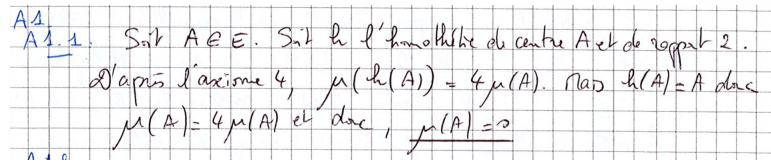 A1.
A1.1. Soit A ∈ E. Soit h l'homothétie de centre A et de rapport 2.
D'après l'axiome 4, μ(h(A)) = 4μ(A). Mais h(A) = A donc
μ(A) = 4μ(A) et donc, μ(A) = 0